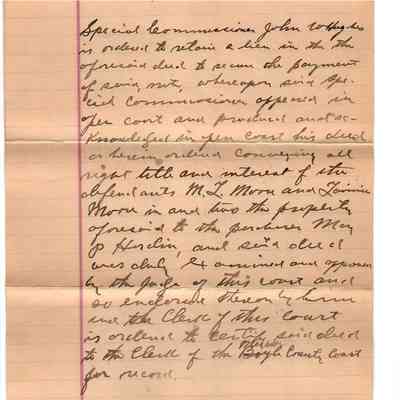 Special Commissioner John W Hughes
is ordered to retain a lien in the the
aforesaid deed to secure the payment
of said note, whereupon said Spe-
cial Commissioner appeared in
open court and produced and ac-
knowledged in open court his deed
as herein ordered conveying all
right title and interest of the
defendants M. L. Moore and Fannie
Moore in and two the property
aforesaid to the purchaser May
P Haselin, and said deed
was duly examined and approved
by the judge of this court and
so endorsed thereon by him
and the Clerk of this court
is ordered to certify said deed
to the Clerk of the Boyle County Court
for record.